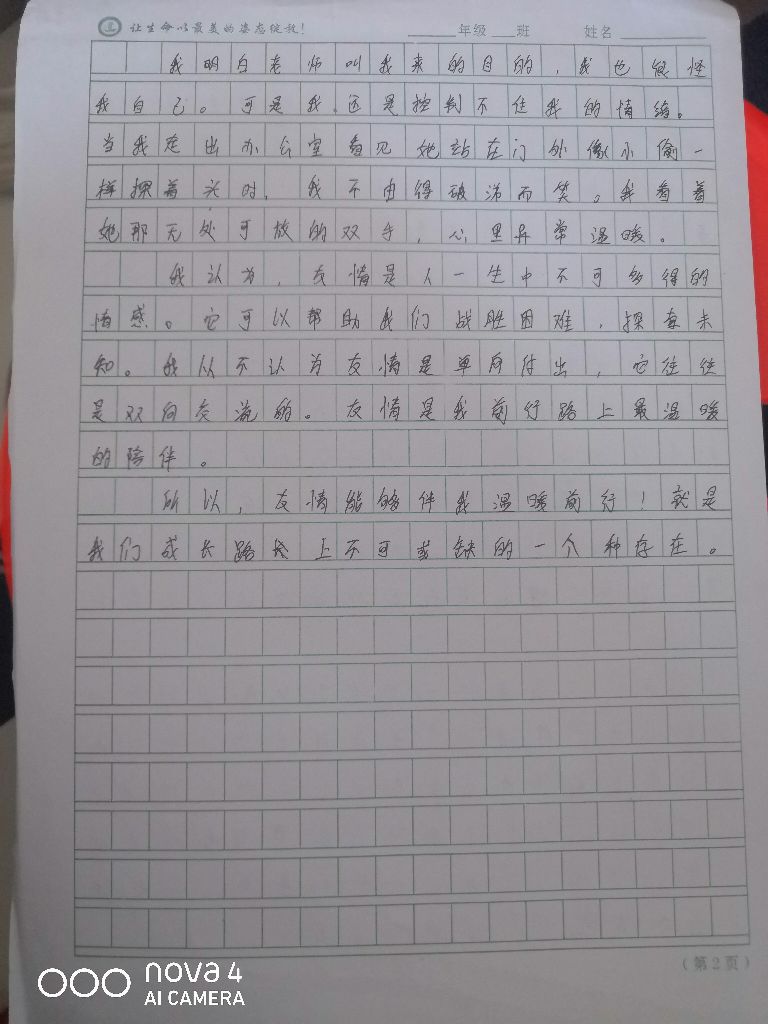 让生命以最美的姿态绽放!
年级 班 姓名
我明白老师叫我来的目的，我也很怪
我自己。可是我还是控制不住我的情绪。
当我走出办公室看见她站在门外像小偷一
样探着头时，我不由得破涕而笑。我看着
她那无处可放的双手，心里异常温暖。
我认为，友情是人一生中不可多得的
情感。它可以帮助我们战胜困难，探索未
知。我从不认为友情是单向付出，它往往
是双向交流的。友情是我前行路上最温暖
的陪伴。
所以，友情能够伴我温暖前行！就是
我们成长路长上不可或缺的一个种存在。
(第2页)
nova 4
AI CAMERA